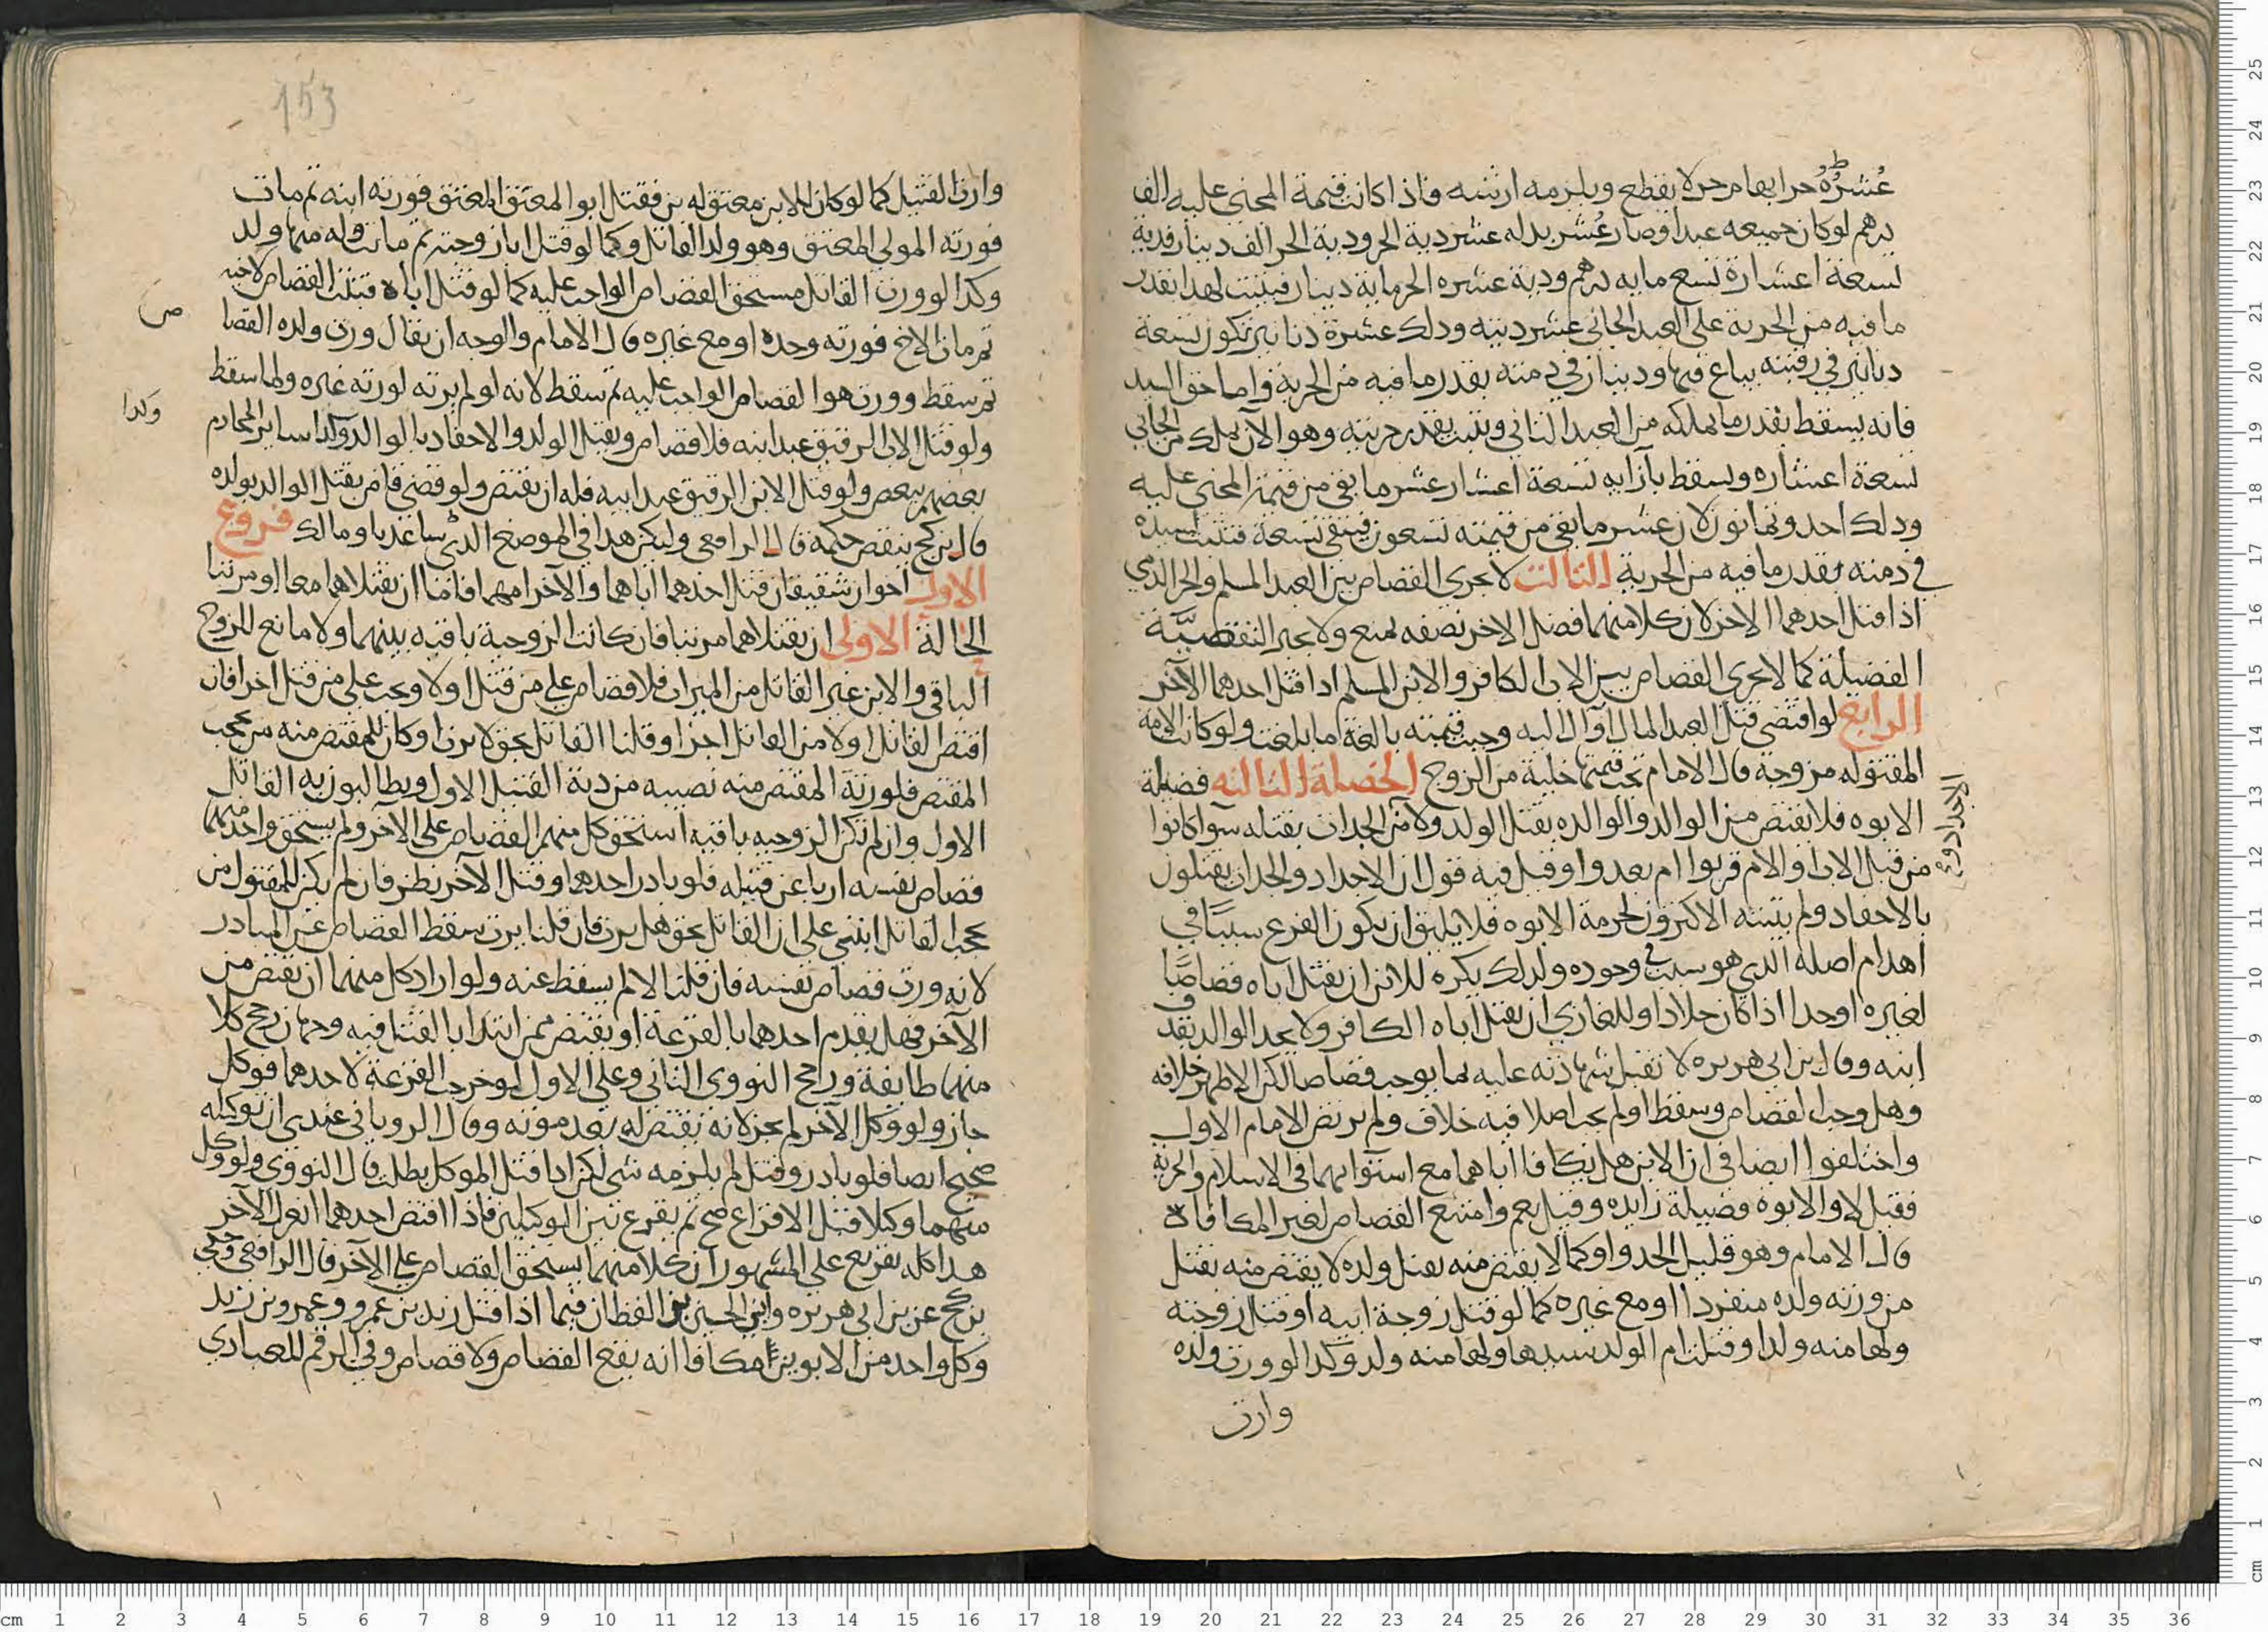 عُشرُهُ حر ابهام حر لا يقطع ويلزمه ارشه فاذا كانت قيمة المجنى عليه الف
درهم لو كان جميعه عبدا وصار عُشر بدله عشر دية الحر ودية الحر الف دينار فدية
تسعة اعشاره تسع مايه درهم ودية عشره الحر مايه دينار فيثبت لهذا بقدر
ما فيه من الحرية على العبد الجانى عشر ديته وذلك عشرة دنانير تكون تسعة
دنانير في رقبته يباع فيها ودينار في ذمته بقدر ما فيه من الحرية واما حق السيد
فانه يسقط بقدر ما يملكه من العبد الثاني ويثبت بقدر حريته وهو الآن يملك من الجاني
تسعة اعشاره ويسقط بآزايه تسعة اعشار عشر ما بقى من قيمة المجنى عليه
وذلك احد وثمانون لان عشر ما بقى من قيمته تسعون فيبقى تسعة فتثبت لسيده
في ذمته بقدر ما فيه من الحرية الثالث لا يجرى القصاص بين العبد المسلم والحر الذمي
اذا قتل احدهما الاخر لان كلا منهما فضل الاخر نصفه لمنع ولا يجبر النقصيّة
الفضيلة كما لا يجرى القصاص بين الاب الكافر والابن المسلم اذا قتل احدهما الآخر
الرابع لو اقتضى قتل العبد المال او آل اليه وجبت قيمته بالغة ما بلغت ولو كانت الامة
المقتوله مزوجة قال الامام تجب قيمتها خلية من الزوج الخصلة الثالثه فضيلة
الابوه فلا يقتص من الوالد والوالده بقتل الولد ولا من الجدات بقتله سوآ كانوا
الاجداد و
من قبل الاب او الام قربوا ام بعدوا وقيل فيه قول ان الاجداد والجدات يقتلون
بالاحفاد ولم يثبته الاكثرون لحرمة الابوه فلا يليق ان يكون الفرع سببًا في
اهدام اصله الذي هو سبب في وجوده ولذلك يكره للابن ان يقتل اباه قصاصًا
لغيره او حدا اذا كان جلادا وللغازي ان يقتل اباه الكافر ولا يحد الوالد بقذف
ابنه وقال بن ابى هريره لا تقبل شهادته عليه بما يوجب قصاصا لكن الاظهر خلافه
وهل وجب القصاص وسقط او لم يجب اصلا فيه خلاف ولم يرتض الامام الاول
واختلفوا ايضا في ان الابن هل يكافا اباهما مع استوايهما في الاسلام والحرية
فقيل لا والابوة فضيلة زايده وقيل نعم وامتنع القصاص لغير المكافاة
قال الامام وهو قليل الجدوا وكما لا يقتص منه بقتل ولده لا يقتص منه بقتل
من ورثه ولده منفردا او مع غيره كما لو قتل زوجة ابيه او قتل زوجته
ولها منه ولد او قتلت ام الولد سيدها ولها منه ولد وكذا لو ورث ولده
وارث
153
وارث القتيل كما لو كان للابن معتق له بن فقتل ابو المعتق المعتق فورثه ابنه ثم مات
فورثه المولى المعتق وهو ولد القاتل وكما لو قتل ابا زوجته ثم ماتت وله منها ولد
وكذا لو ورث القاتل مستحق القصاص الواجب عليه كما لو قتل اباه فثبت القصاص لاخيه
ثم مات الاخ فورثه وحده او مع غيره قال الامام والوجه ان يقال ورث ولده القصا
ص
ثم سقط وورث هو القصاص الواجب عليه ثم سقط لانه لو لم يرثه لورثه غيره ولما سقط
ولو قتل الاب الرقيق عبد ابنه فلا قصاص ويقتل الولد والاحفاد بالوالد وكذا ساير المحارم
وكذا
بعضهم ببعض ولو قتل الابن الرقيق عبد ابيه فله ان يقتص ولو قضى قاض بقتل الوالد بولده
قال بن كج ينقض حكمه قال الرافعى وليكن هذا في الموضع الذي ساعدنا ومالك فروع
الاول اخوان شقيقان قتل احدهما اباهما والآخر امهما فاما ان يقتلاهما معا او مرتبا
الحالة الاولى ان يقتلاهما مرتبا فان كانت الزوجية باقيه بينهما ولا مانع للزوج
الباقي والابن غير القاتل من الميراث فلا قصاص على من قتل اولا ويجب على من قتل اخرا فان
اقتص القاتل اولا من القاتل اخرا وقلنا القاتل بحق لا يرث او كان للمقتص منه من يحجب
المقتص فلورثة المقتص منه نصيبه من دية القتيل الاول ويطالبون به القاتل
الاول وان لم تكن الزوجيه باقيه استحق كل منهم القصاص على الآخر ولم يستحق واحد منهما
قصاص نفسه ارثا عن قتيله فلو بادر احدهما وقتل الآخر نظر فان لم يكن للمقتول من
يحجب القاتل ابتنى على ان القاتل بحق هل يرث فان قلنا يرث سقط القصاص عن المبادر
لانه ورث قصاص نفسه فان قلنا لا لم يسقط عنه ولو اراد كل منهما ان يقتص من
الآخر فهل يقدم احدهما بالقرعة او يقتص ممن ابتدا بالقتل فيه وجهان رجح كلا
منهما طايفة ورجح النووى الثاني وعلى الاول لو خرجت القرعة لاحدهما فوكل
جاز ولو وكل الآخر لم يجز لانه يقتص له بعد موته وقال الرويانى عندي ان توكيله
صحيح ايضا فلو بادر وقتل لم يلزمه شى لكن اذا قتل الموكل بطلت قال النووي ولو وكل كل
منهما وكيلا قبل الاقراع صح ثم يقرع بين الوكيلين فاذا اقتص احدهما انعزل الآخر
هذا كله تفريع على المشهور ان كلا منهما يستحق القصاص على الآخر قال الرافعى وحكى
بن كج عن بن ابى هريره وابن الحسين بن القطان فيما اذا قتل زيد بن عمرو وعمرو بن زيد
وكل واحد من الابوين مكافا انه يقع القصاص ولا قصاص وفي الرقم للعبادي